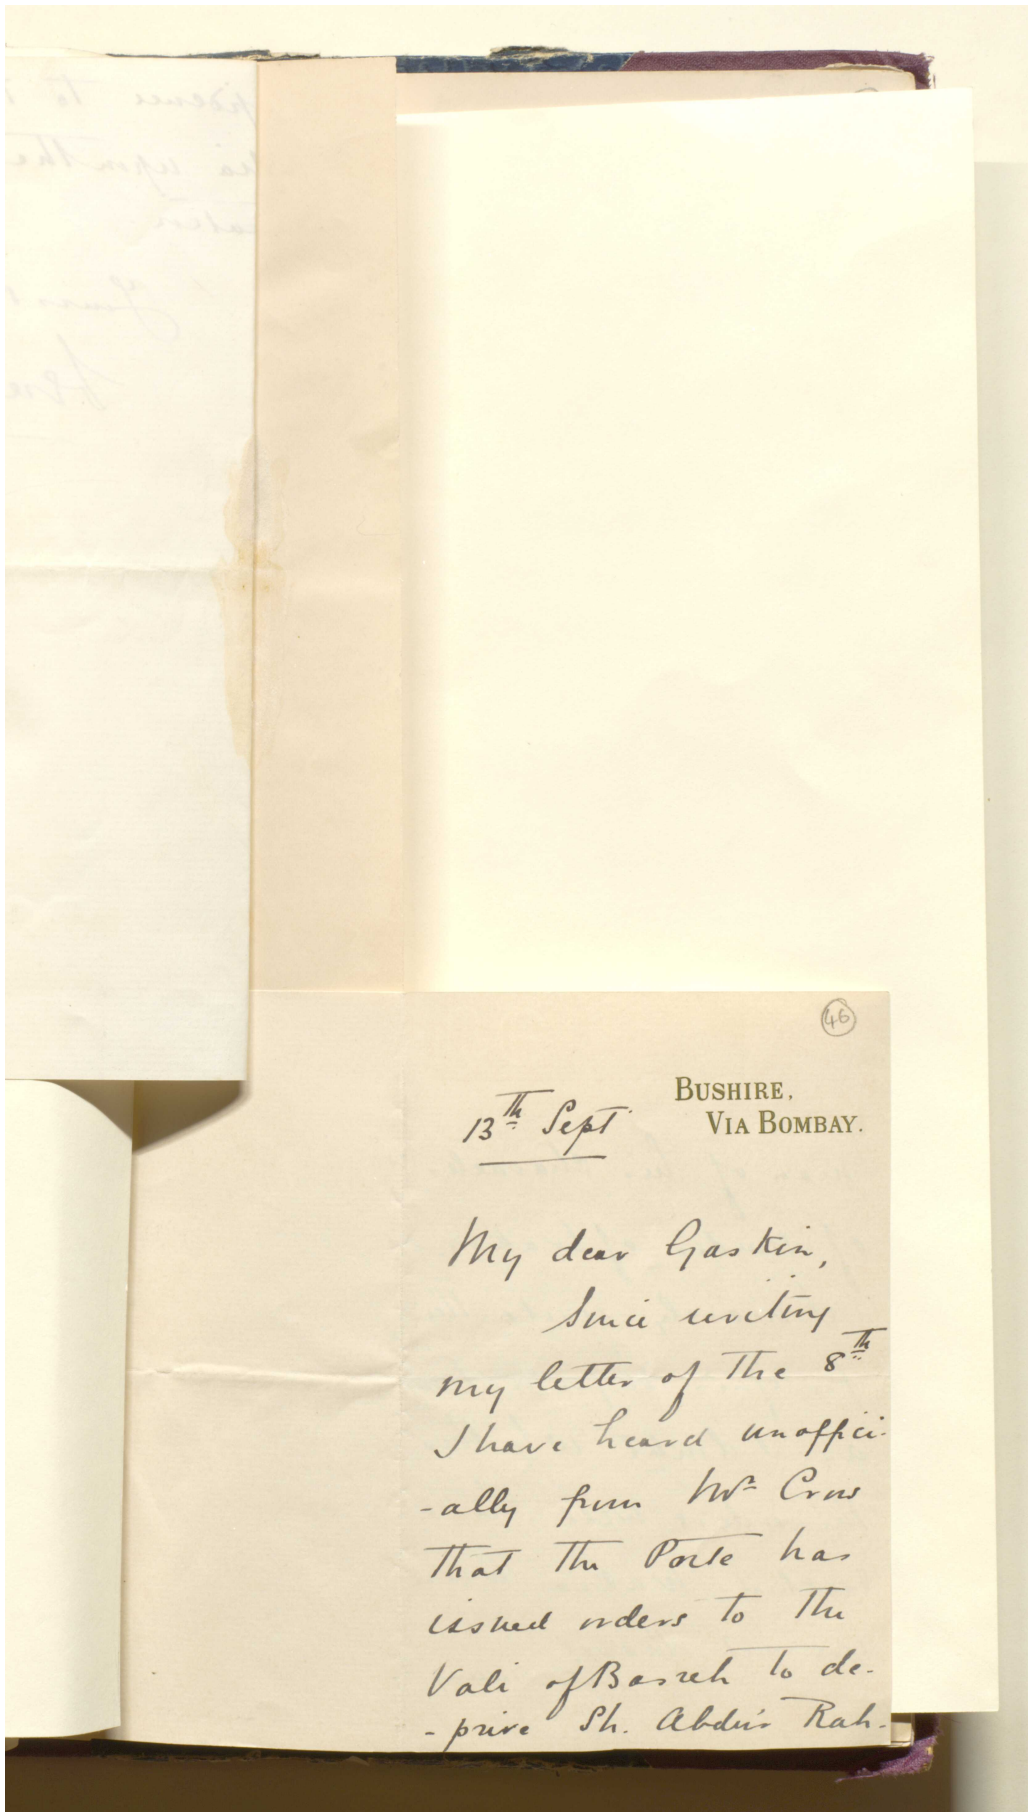 46
BUSHIRE,
VIA BOMBAY.
13th Sept
My dear Gaskin,
Since writing
my letter of the 8th
I have heard unoffici-
-ally from Mr Crow
that the Porte has
issued orders to the
Vali of Basreh to de-
-prive Sh. Abdur Rah-